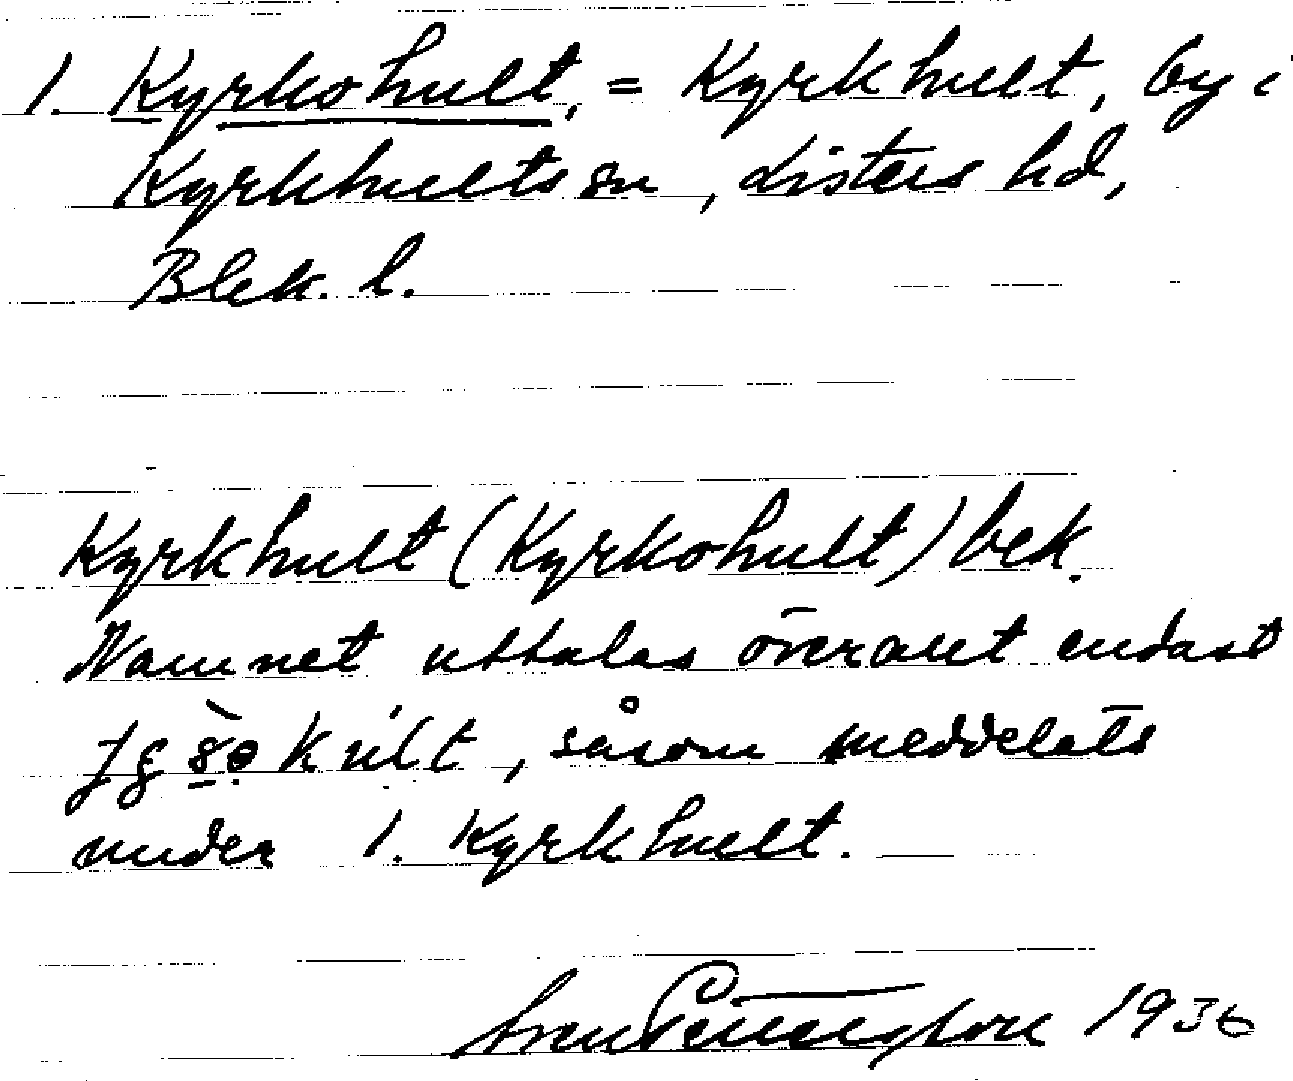 1. Kyrkohult, = Kyrkhult, by i
Kyrkhults sn, Listers hd,
Blek. l.
Kyrkhult (Kyrkohult) bek.
Namnet uttalas överallt endast
såsom meddelats
under 1. Kyrkhult.
Sven Pettersson 1936